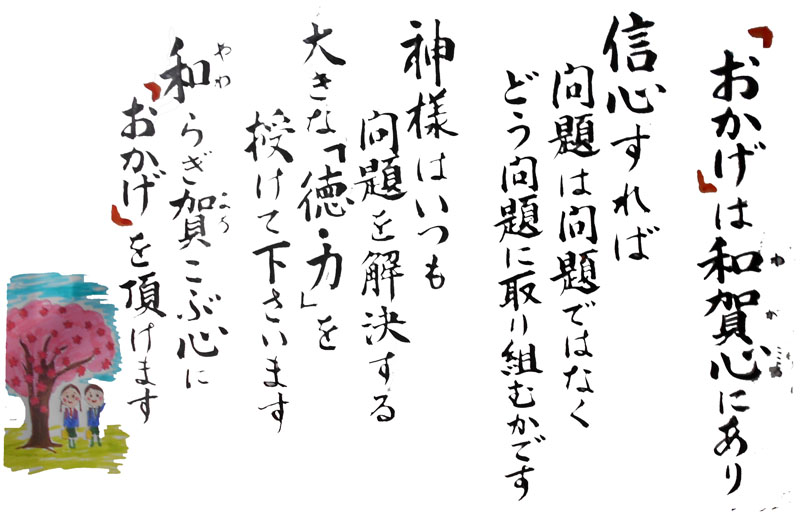 「おかげ」は和賀心にあり
信心すれば
問題は問題ではなく
どう問題に取り組むかです
神様はいつも
問題を解決する
大きな「徳・力」を
授けて下さいます
和らぎ賀こぶ心に
「おかげ」を頂けます